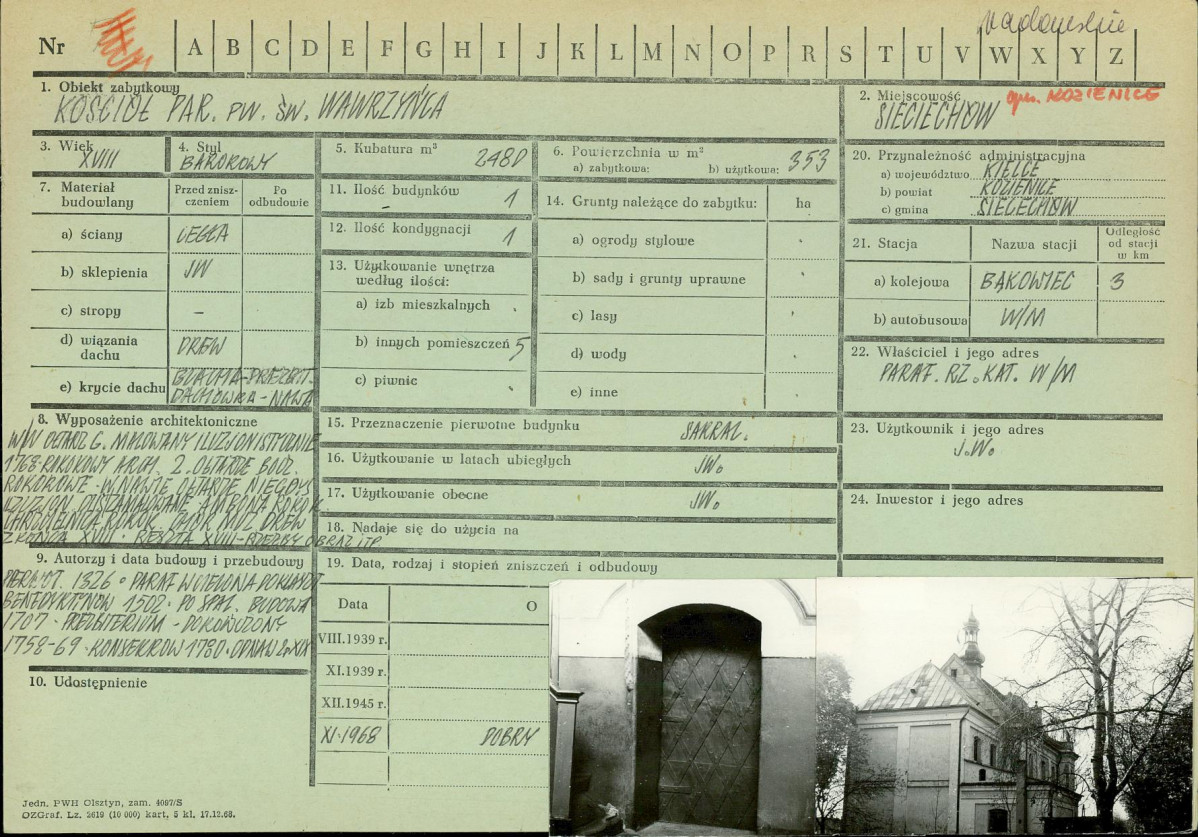 Nr A B C D E F G H I J K L M N O P R S T U V W X Y Z
radomskie
1. Obiekt zabytkowy
KOŚCIÓŁ PAR. PW. ŚW. WAWRZYŃCA
2. Miejscowość
gm. KOZIENICE
SIECIECHÓW
3. Wiek
XVIII
4. Styl
BAROKOWY
5. Kubatura m³
2480
6. Powierzchnia w m²
a) zabytkowa: b) użytkowa: 353
20. Przynależność administracyjna
a) województwo KIELCE
b) powiat KOZIENICE
c) gmina SIECIECHÓW
7. Materiał budowlany
Przed zniszczeniem
Po odbudowie
a) ściany CEGŁA
b) sklepienia JW
c) stropy –
d) wiązania dachu DREW
e) krycie dachu BLACHA-PREZBIT.
DACHÓWKA - NAWA
11. Ilość budynków 1
12. Ilość kondygnacji 1
13. Użytkowanie wnętrza według ilości:
a) izb mieszkalnych
b) innych pomieszczeń 5
c) piwnic
14. Grunty należące do zabytku: ha
a) ogrody stylowe
b) sady i grunty uprawne
c) lasy
d) wody
e) inne
21. Stacja
Nazwa stacji
Odległość od stacji w km
a) kolejowa BĄKOWIEC 3
b) autobusowa W/M
22. Właściciel i jego adres
PARAF. RZ. KAT. W/M
8. Wyposażenie architektoniczne
W/W OŁTARZ G. MALOWANY ILUZJONISTYCZNIE
1768-ROKOKOWY ARCH. 2. OŁTARZE BOCZ.
ROKOKOWE. W NAWIE OŁTARZE NIEGDYŚ
AMBONA ROKOK.
CHRZCIELNICA ROKOK. DREW
Z KOŃCA XVIII. RESZTA XVIII-RZEŹBY OBRAZ ITP
15. Przeznaczenie pierwotne budynku SAKRAL.
16. Użytkowanie w latach ubiegłych JW.
17. Użytkowanie obecne JW.
18. Nadaje się do użycia na
23. Użytkownik i jego adres
J.W.
24. Inwestor i jego adres
9. Autorzy i data budowy i przebudowy
PIERWOT. 1326. PARAF WCIELONA DO KLASZT
BENEDYKTYNÓW 1502. PO SPAL. BUDOWA
1707 - PREZBITERIUM - DOKOŃCZONY
1758-69. KONSEKROW 1780. ODNAW 2 w XIX
10. Udostępnienie
19. Data, rodzaj i stopień zniszczeń i odbudowy
Data O
VIII.1939 r.
XI.1939 r.
XII.1945 r.
XI.1968 DOBRY
Jedn. PWH Olsztyn, zam. 4097/S
OZGraf. Lz. 2619 (10 000) kart, 5 kl. 17.12.68.